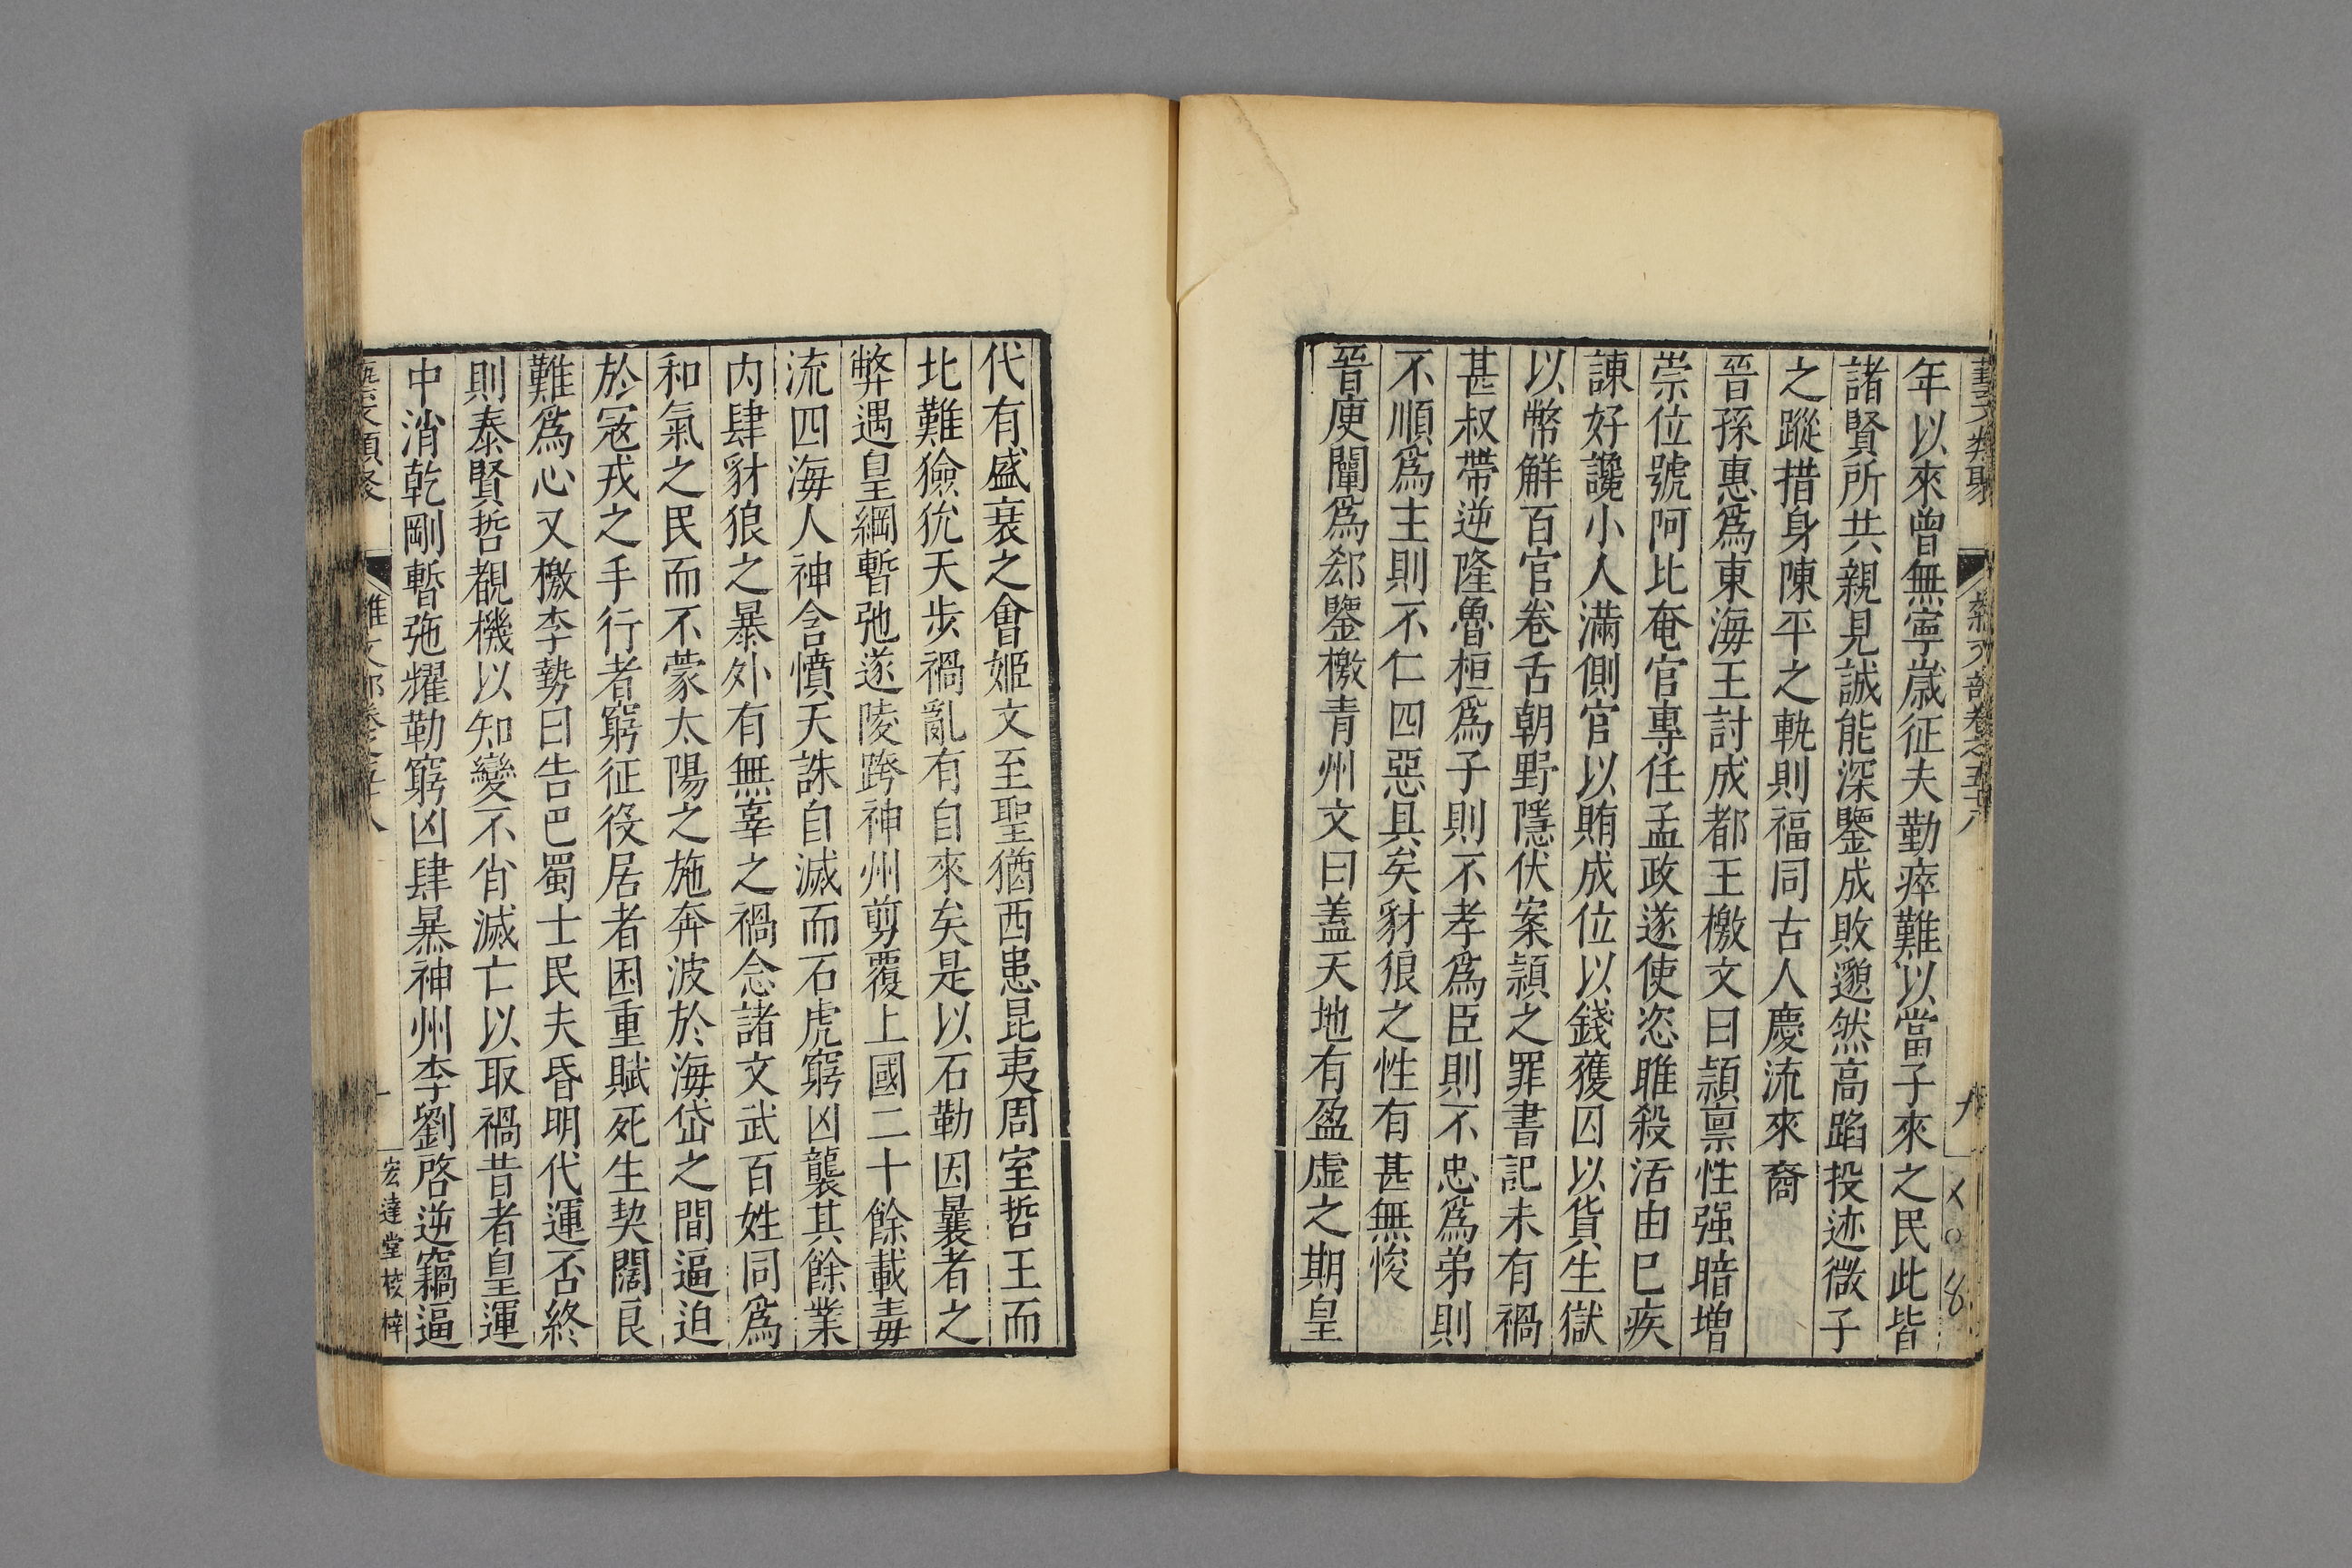 年以來曾無寧歲征夫勤瘁難以當子來之民此皆
諸賢所共親見誠能深鑒成敗邈然高蹈投迹微子
之蹤措身陳平之軌則福同古人慶流來裔
晉孫惠為東海王討成都王檄文曰頴禀性强暗增
崇位號阿比奄官專任孟政遂使恣睢殺活由已疾
諫好讒小人滿側官以賄成位以錢獲囚以貨生獄
以幣解百官卷舌朝野隱伏案頴之罪書記未有禍
甚叔帶逆隆魯桓爲子則不孝爲臣則不忠爲弟則
不順爲主則不仁四惡具矣豺狼之性有甚無悛
晉庾闡爲郄鑒檄青州文曰蓋天地有盈虛之期皇
代有盛衰之會姬文至聖猶西患昆夷周室哲王而
北難獫狁天步禍亂有自來矣是以石勒因曩者之
弊遇皇綱暫弛遂陵跨神州剪覆上國二十餘載毒
流四海人神含憤天誅自滅而石虎窮凶襲其餘業
内肆豺狼之暴外有無辜之禍念諸文武百姓同爲
和氣之民而不蒙太陽之施奔波於海岱之間逼迫
於寇戎之手行者窮征役居者困重賦死生契闊良
難爲心又檄李勢曰告巴蜀士民夫昏明代運否終
則泰賢哲覩機以知變不肖滅亡以取禍昔者皇運
中消乾剛暫弛耀勒窮凶肆暴神州李劉啓逆竊逼
宏達堂校梓